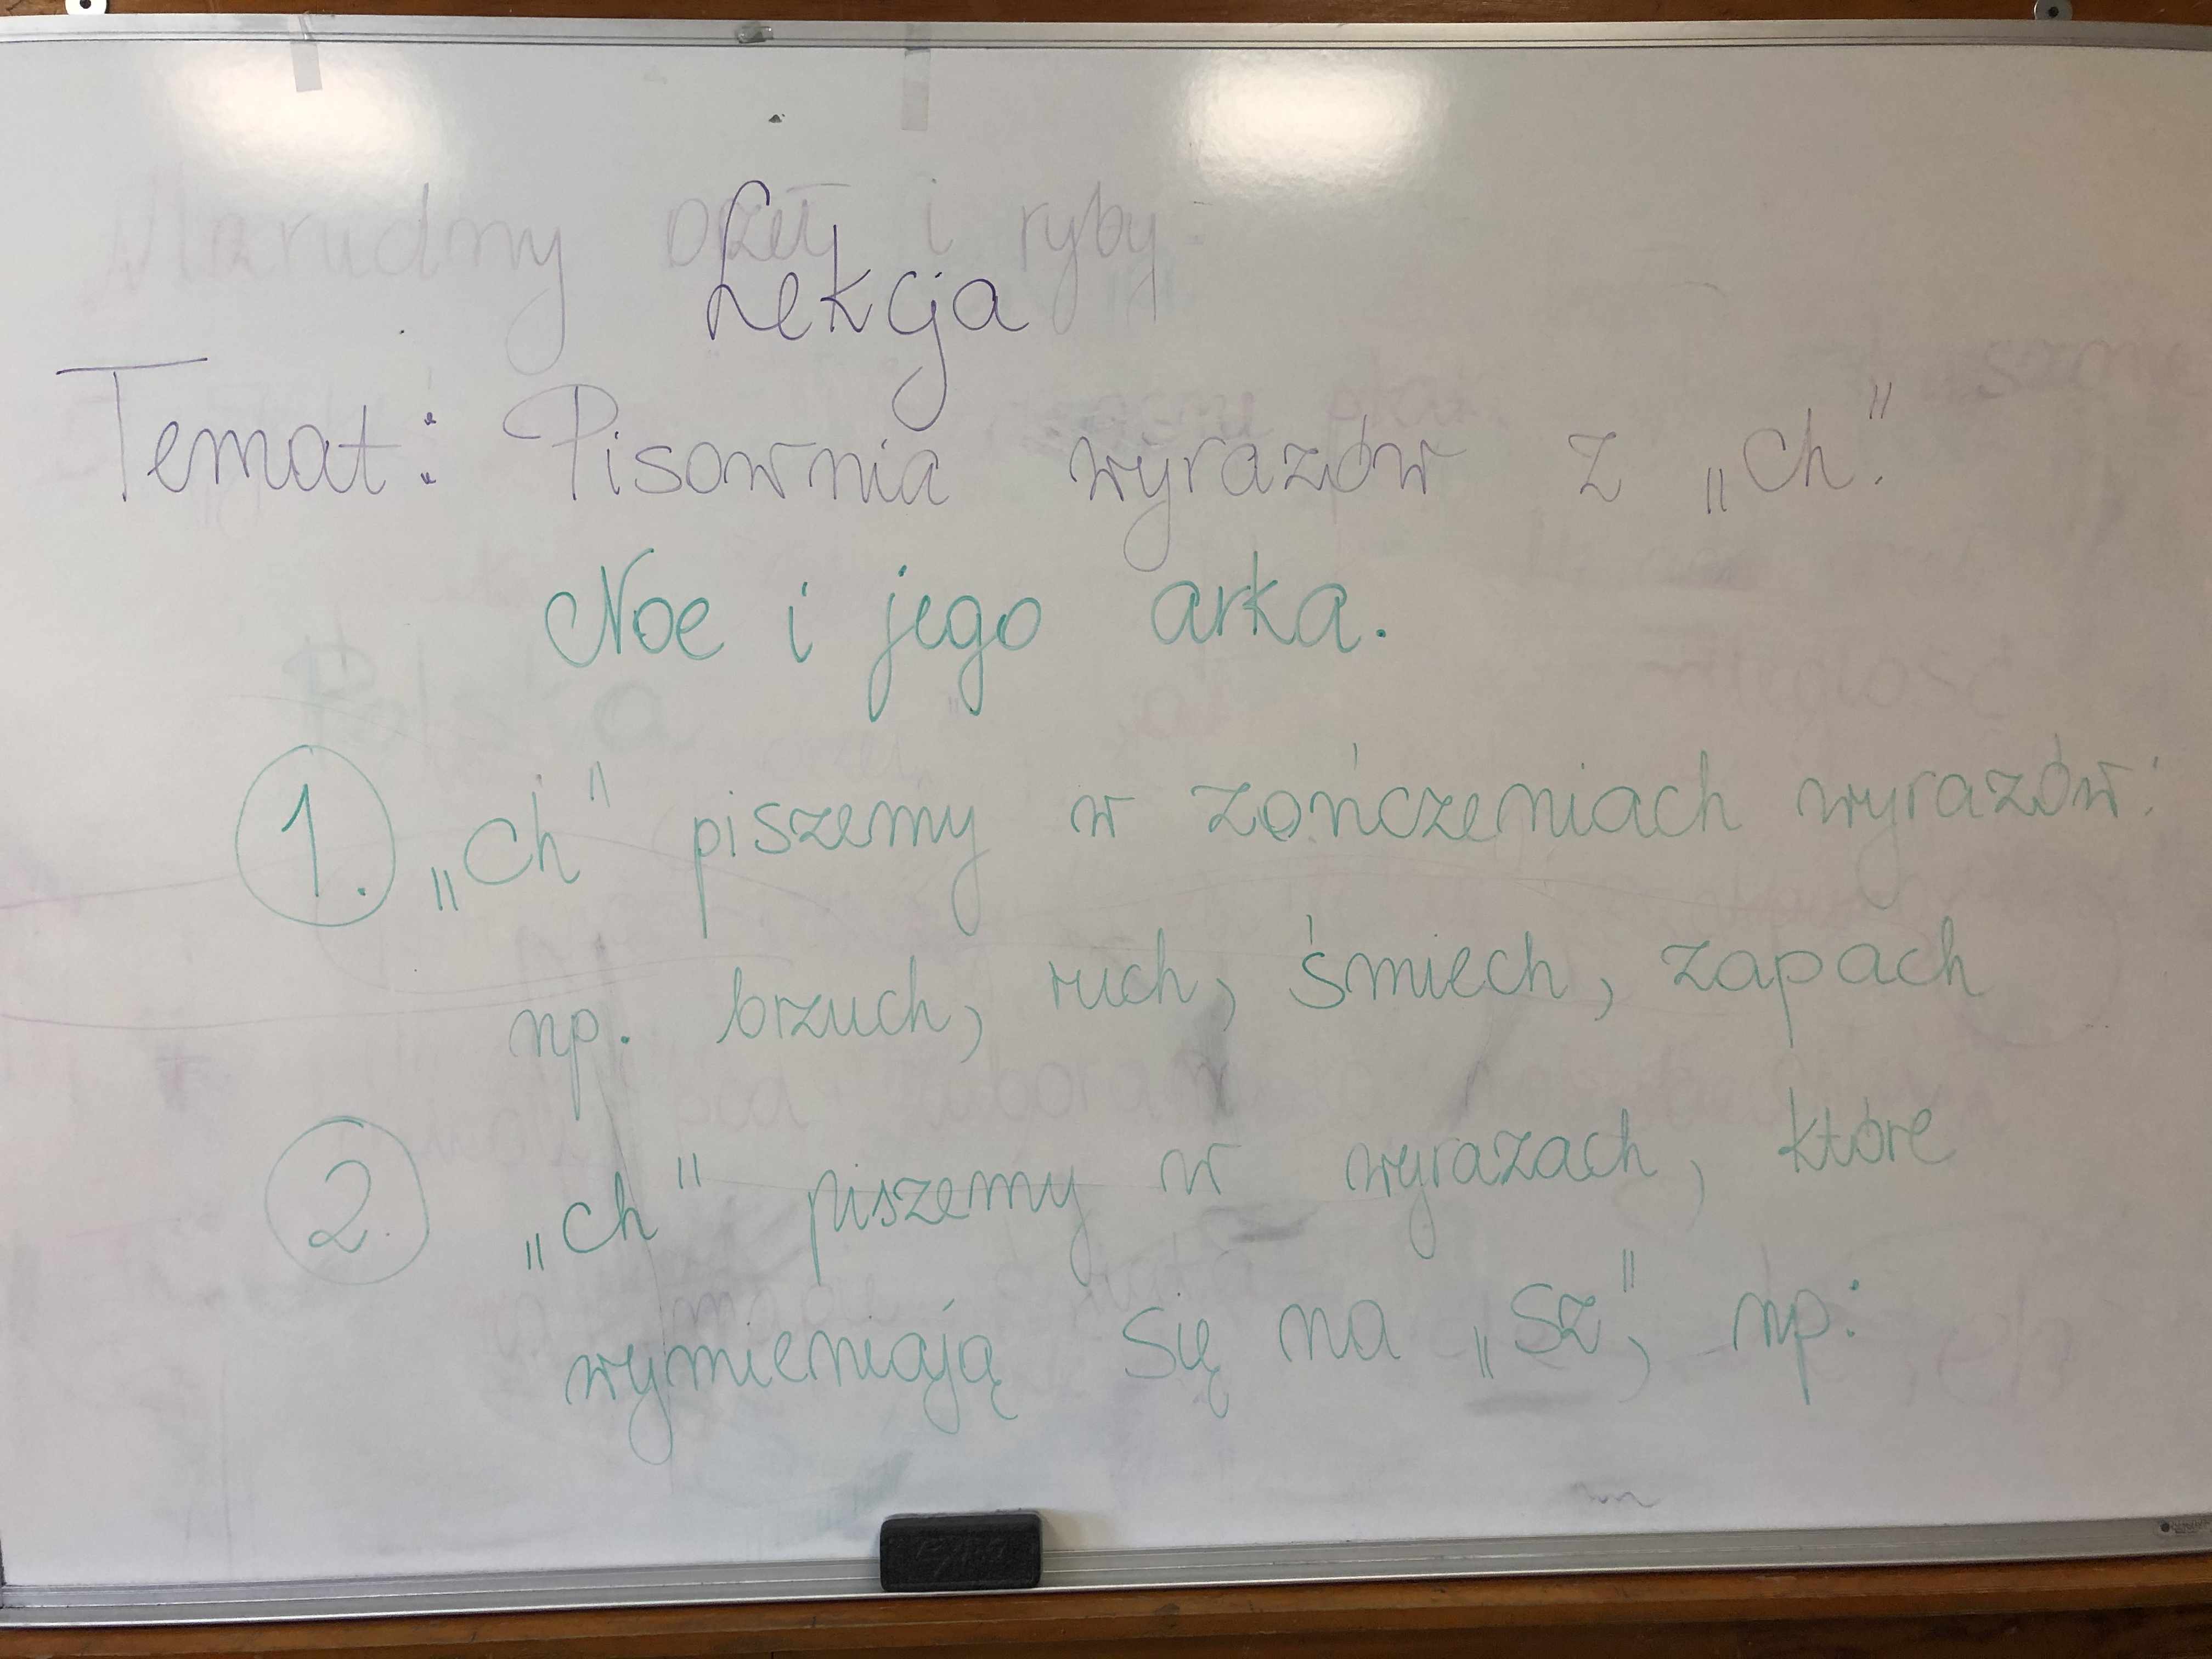 Lekcja
Temat: Pisownia wyrazów z „ch".
Noe i jego arka.
1. „Ch" piszemy w zończeniach wyrazów:
np. brzuch, ruch, śmiech, zapach
2. „ch" piszemy w wyrazach, które
wymieniają się na „sz", np: